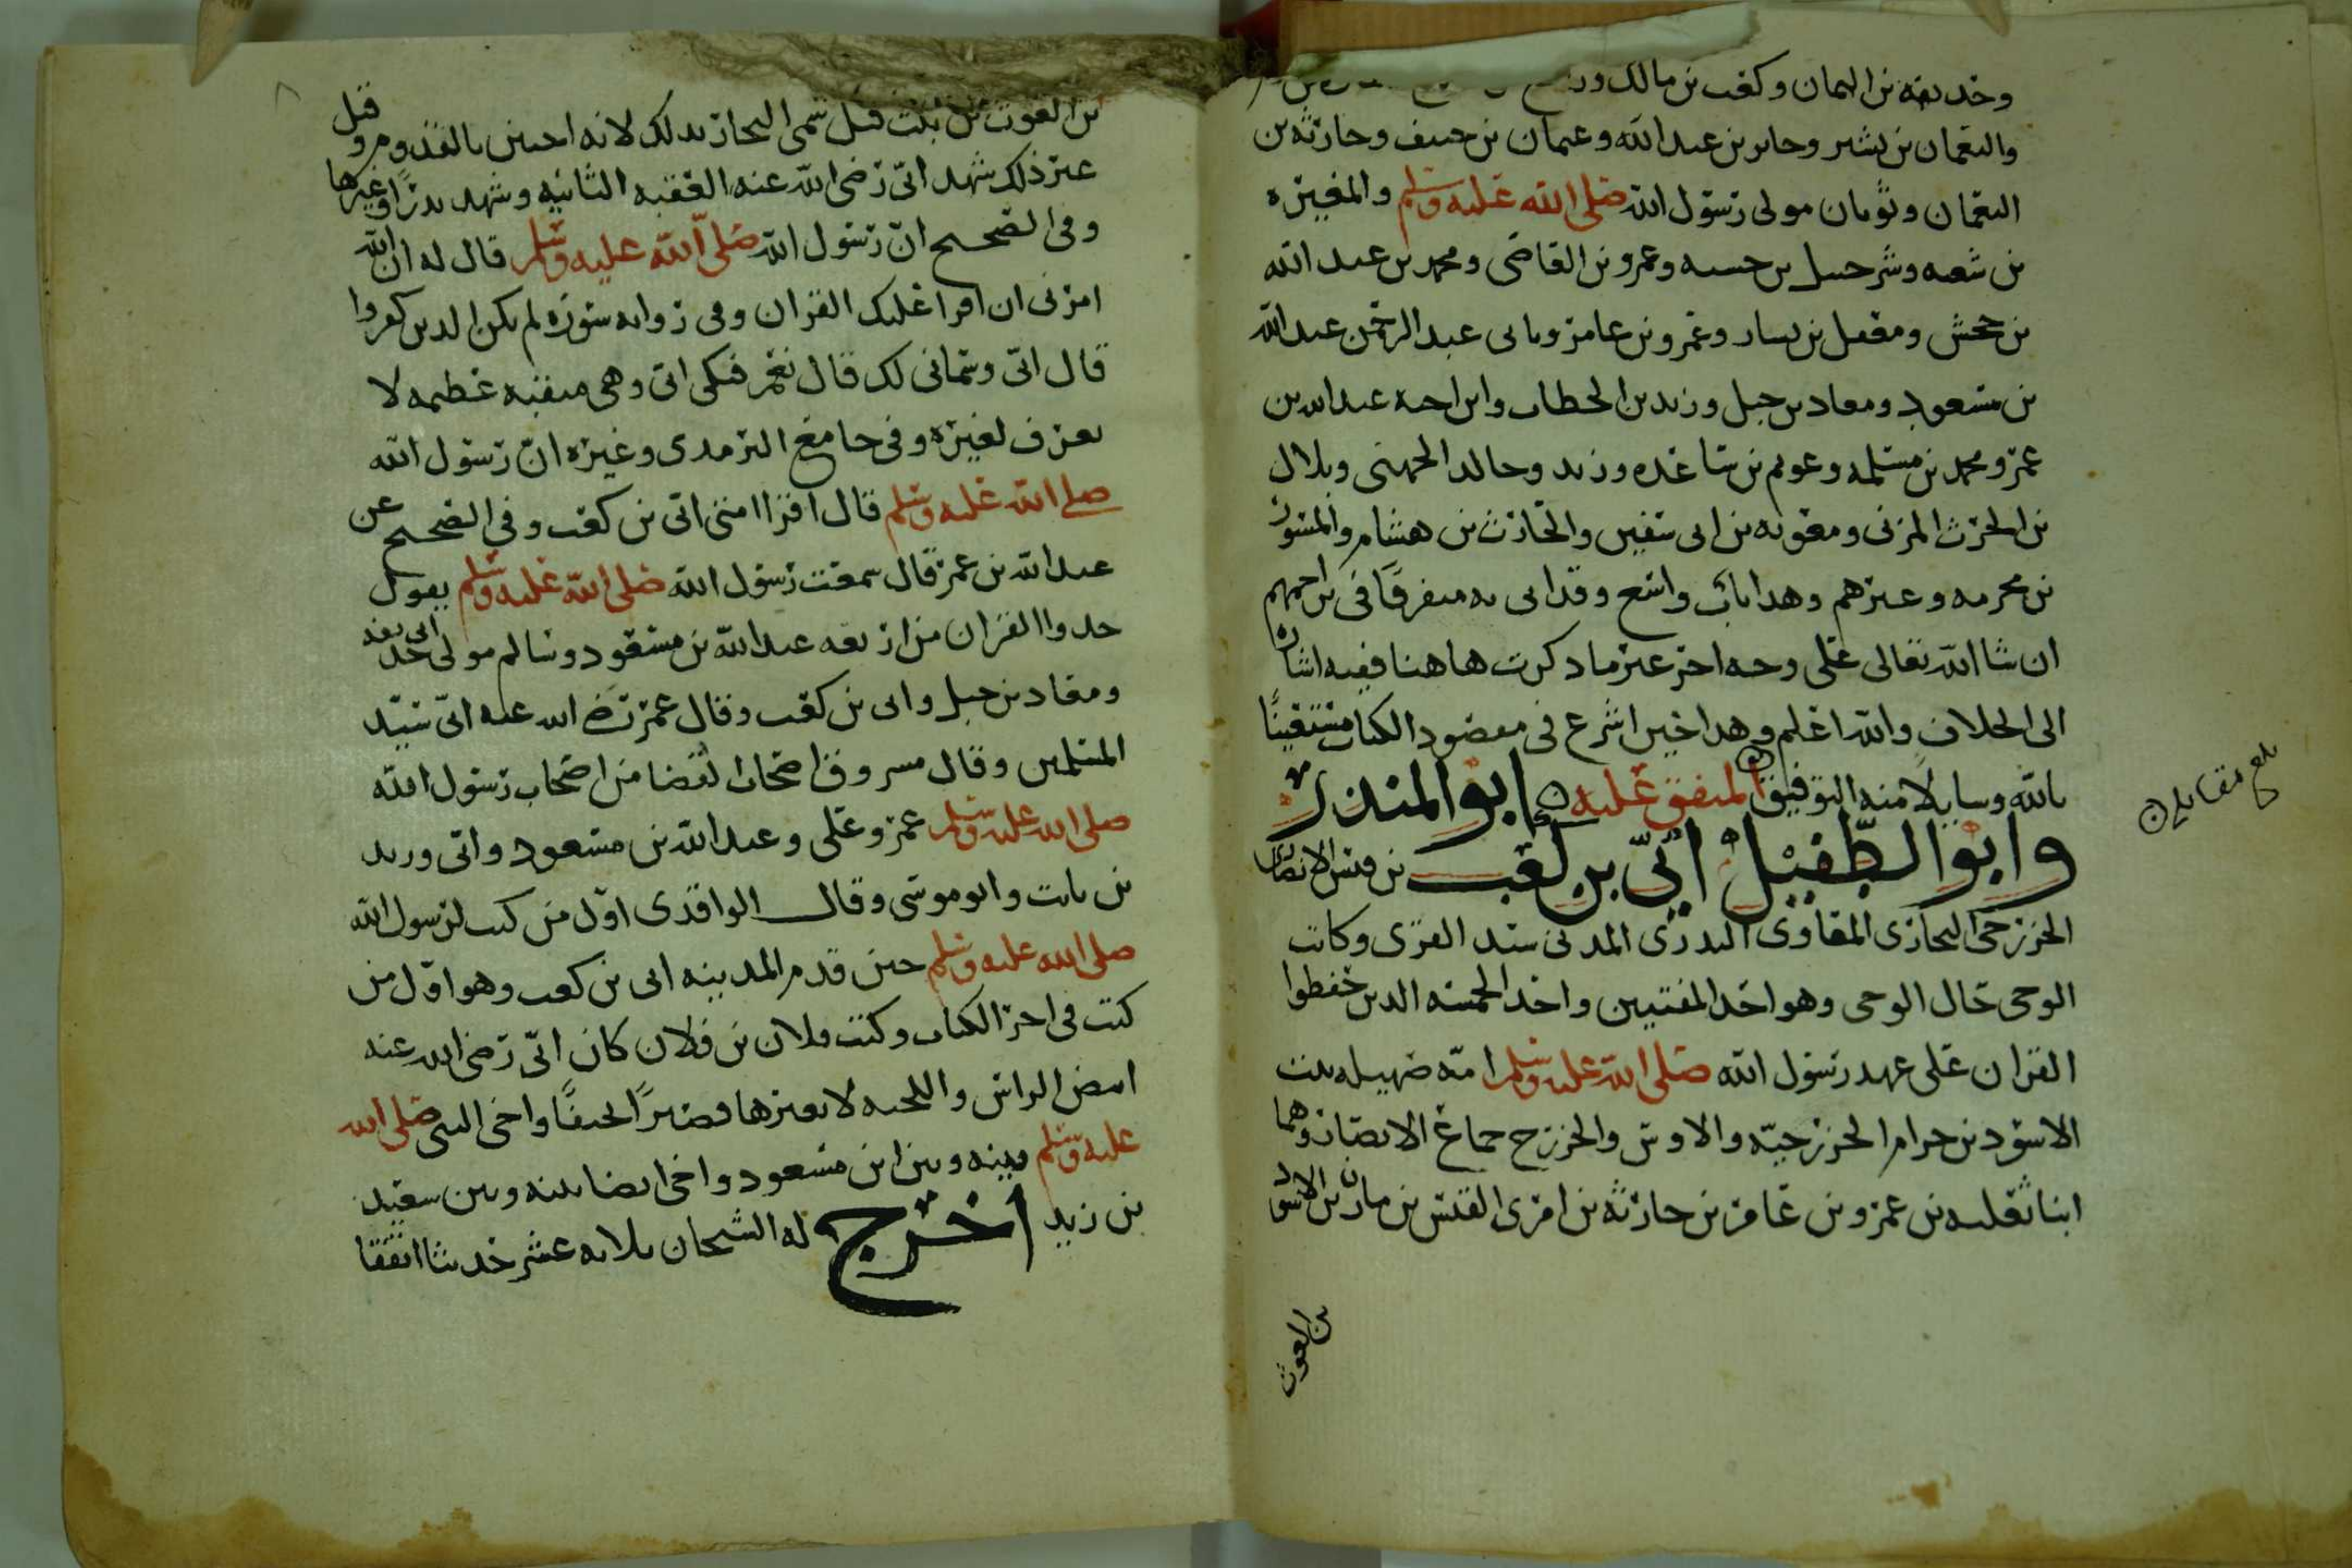 وحذيفة بن اليمان وكعب بن مالك
والنعمان بن بشير وجابر بن عبد الله وعثمان بن حنيف وحارثة بن
النعمان وثوبان مولى رسول الله صلى الله عليه وسلم والمغيرة
بن شعبة وشرحبيل بن حسنة وعمرو بن القاضي ومحمد بن عبد الله
بن جحش ومعقل بن يسار وعمرو بن عامر وبابي عبد الرحمن عبد الله
بن مسعود ومعاذ بن جبل وزيد بن الخطاب وابن اخيه عبد الله بن
عمر ومحمد بن مسلمة وعويم بن ساعدة وزيد وخالد الجهني وبلال
بن الحرث المزني ومعوية بن ابي سفين والحارث بن هشام والمسور
بن مخرمة وغيرهم وهذا باب واسع وقد اتى به متفرقا في تراجمهم
ان شا الله تعالى على وجه اخر غير ما ذكرت هاهنا ففيه اشارة
الى الخلاف والله اعلم وهذا حين اشرع في مقصود الكتاب مستعينا
بالله وسايلا منه التوفيق المتفق عليه ابو المنذر
وابو الطفيل ابي بن كعب بن قيس الانصاري
الخزرجي النجاري المعاوي البدري المدني سيد القرى وكاتب
الوحي حال الوحي وهو احد المفتيين واحد الخمسة الذين حفظوا
القران على عهد رسول الله صلى الله عليه وسلم امه صهيلة بنت
الاسود بن حرام الخزرجية والاوس والخزرج جماع الانصار وهما
ابنا ثعلبة بن عمرو بن عامر بن حارثة بن امرى القيس بن مازن بن الاسود
بن الغوث
بلغ مقابلة
بن الغوث بن نبت قيل سمي النجار بذلك لانه اختتن بالقدوم وقيل
غير ذلك شهد ابي رضي الله عنه العقبة الثانية وشهد بدرا وغيرها
وفي الصحيح ان رسول الله صلى الله عليه وسلم قال له ان الله
امرني ان اقرا عليك القران وفي رواية سورة لم يكن الذين كفروا
قال ابي وسماني لك قال نعم فبكى ابي وهي منقبة عظيمة لا
تعرف لغيره وفي جامع الترمذي وغيره ان رسول الله
صلى الله عليه وسلم قال اقرا امتي ابي بن كعب وفي الصحيح عن
عبد الله بن عمر قال سمعت رسول الله صلى الله عليه وسلم يقول
خذوا القران من اربعة عبد الله بن مسعود وسالم مولى ابي حذيفة
ومعاذ بن جبل وابي بن كعب وقال عمر رضي الله عنه ابي سيد
المسلمين وقال مسروق اصحاب القضا من اصحاب رسول الله
صلى الله عليه وسلم عمر وعلي وعبد الله بن مسعود وابي وزيد
بن ثابت وابو موسى وقال الواقدي اول من كتب لرسول الله
صلى الله عليه وسلم حين قدم المدينة ابي بن كعب وهو اول من
كتب في اخر الكتاب وكتب فلان بن فلان كان ابي رضي الله عنه
ابيض الراس واللحية لا يغيرها قصيرا نحيفا واخى النبي صلى الله
عليه وسلم بينه وبين ابن مسعود واخى ايضا بينه وبين سعيد
بن زيد اخرج له الشيخان ثلاثة عشر حديثا اتفقا